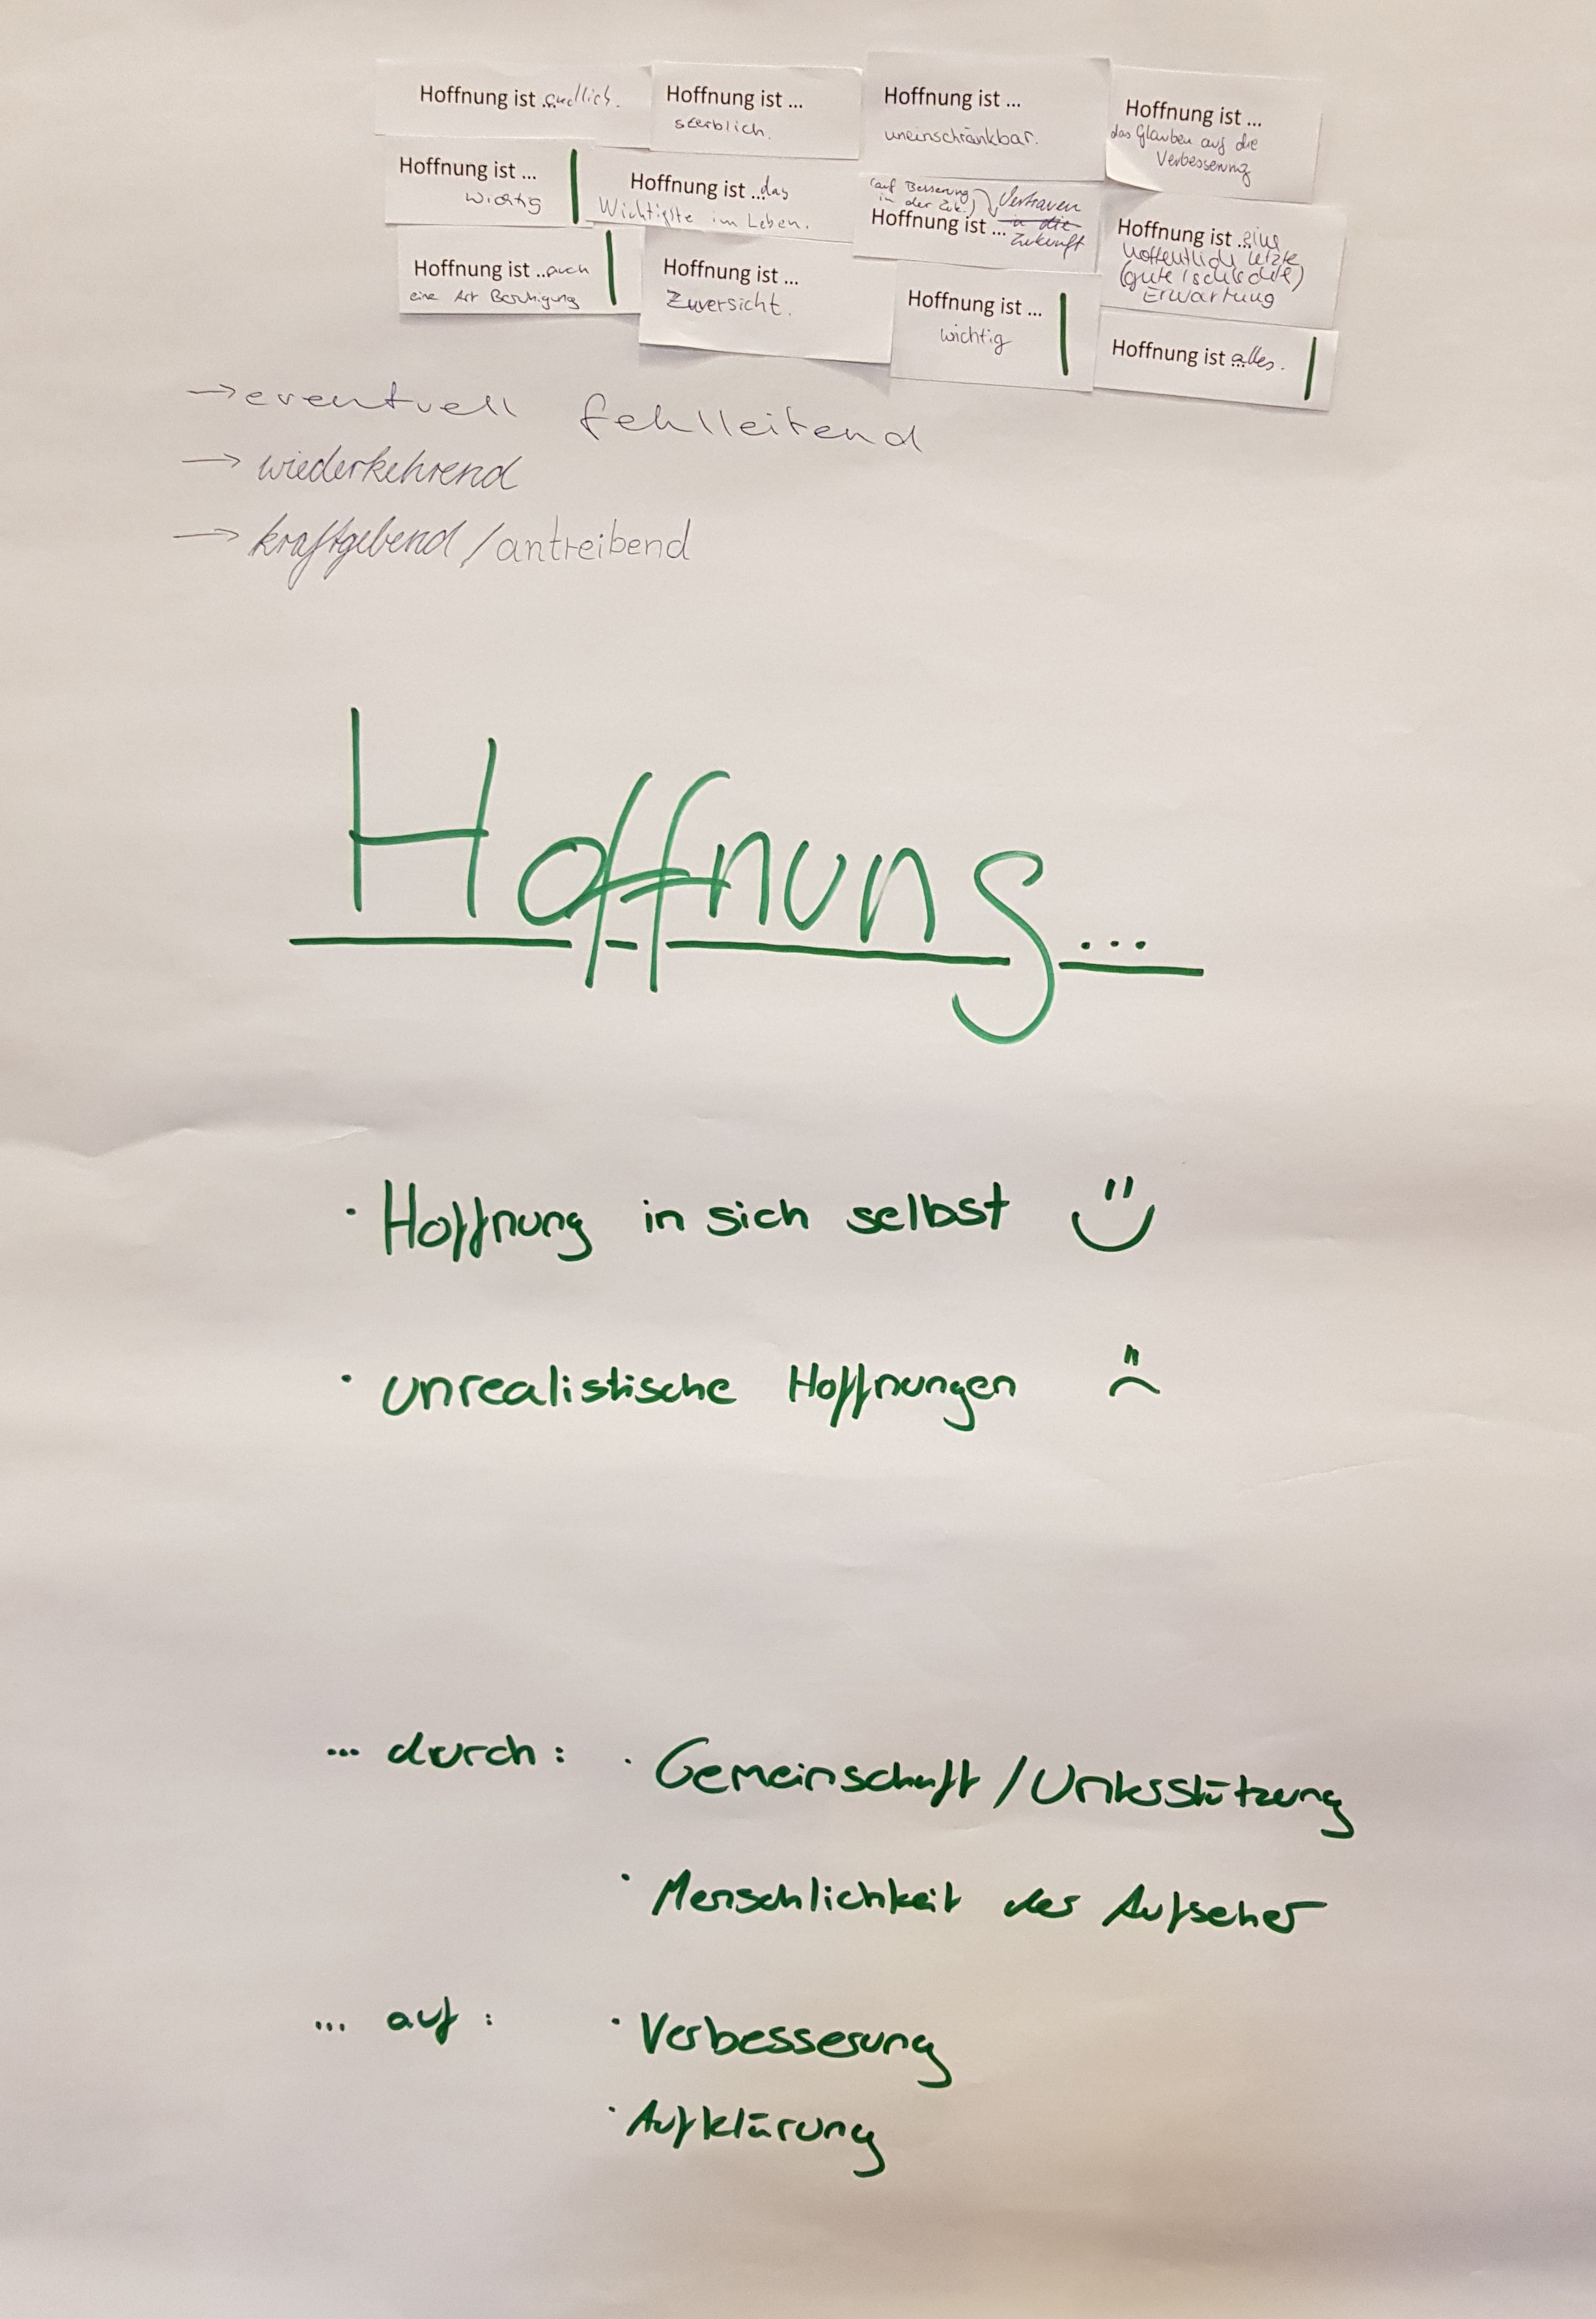 Hoffnung ist ... endlich.
Hoffnung ist ...
sterblich.
Hoffnung ist ...
uneinschränkbar.
Hoffnung ist ...
das Glauben auf die
Verbesserung
Hoffnung ist ...
wichtig
Hoffnung ist ... das
Wichtigste im Leben.
(auf Besserung
in der Zuk.)
Vertrauen
Hoffnung ist ... in die
Zukunft
Hoffnung ist ... eine
hoffentlich letzte
(gute/schlechte)
Erwartung
Hoffnung ist ... auch
eine Art Beruhigung
Hoffnung ist ...
Zuversicht.
Hoffnung ist ...
wichtig
Hoffnung ist ... alles.
→ eventuell fehlleitend
→ wiederkehrend
→ kraftgebend / antreibend
Hoffnung...
· Hoffnung in sich selbst
· unrealistische Hoffnungen
... durch: · Gemeinschaft / Unterstützung
· Menschlichkeit der Aufseher
... auf: · Verbesserung
· Aufklärung